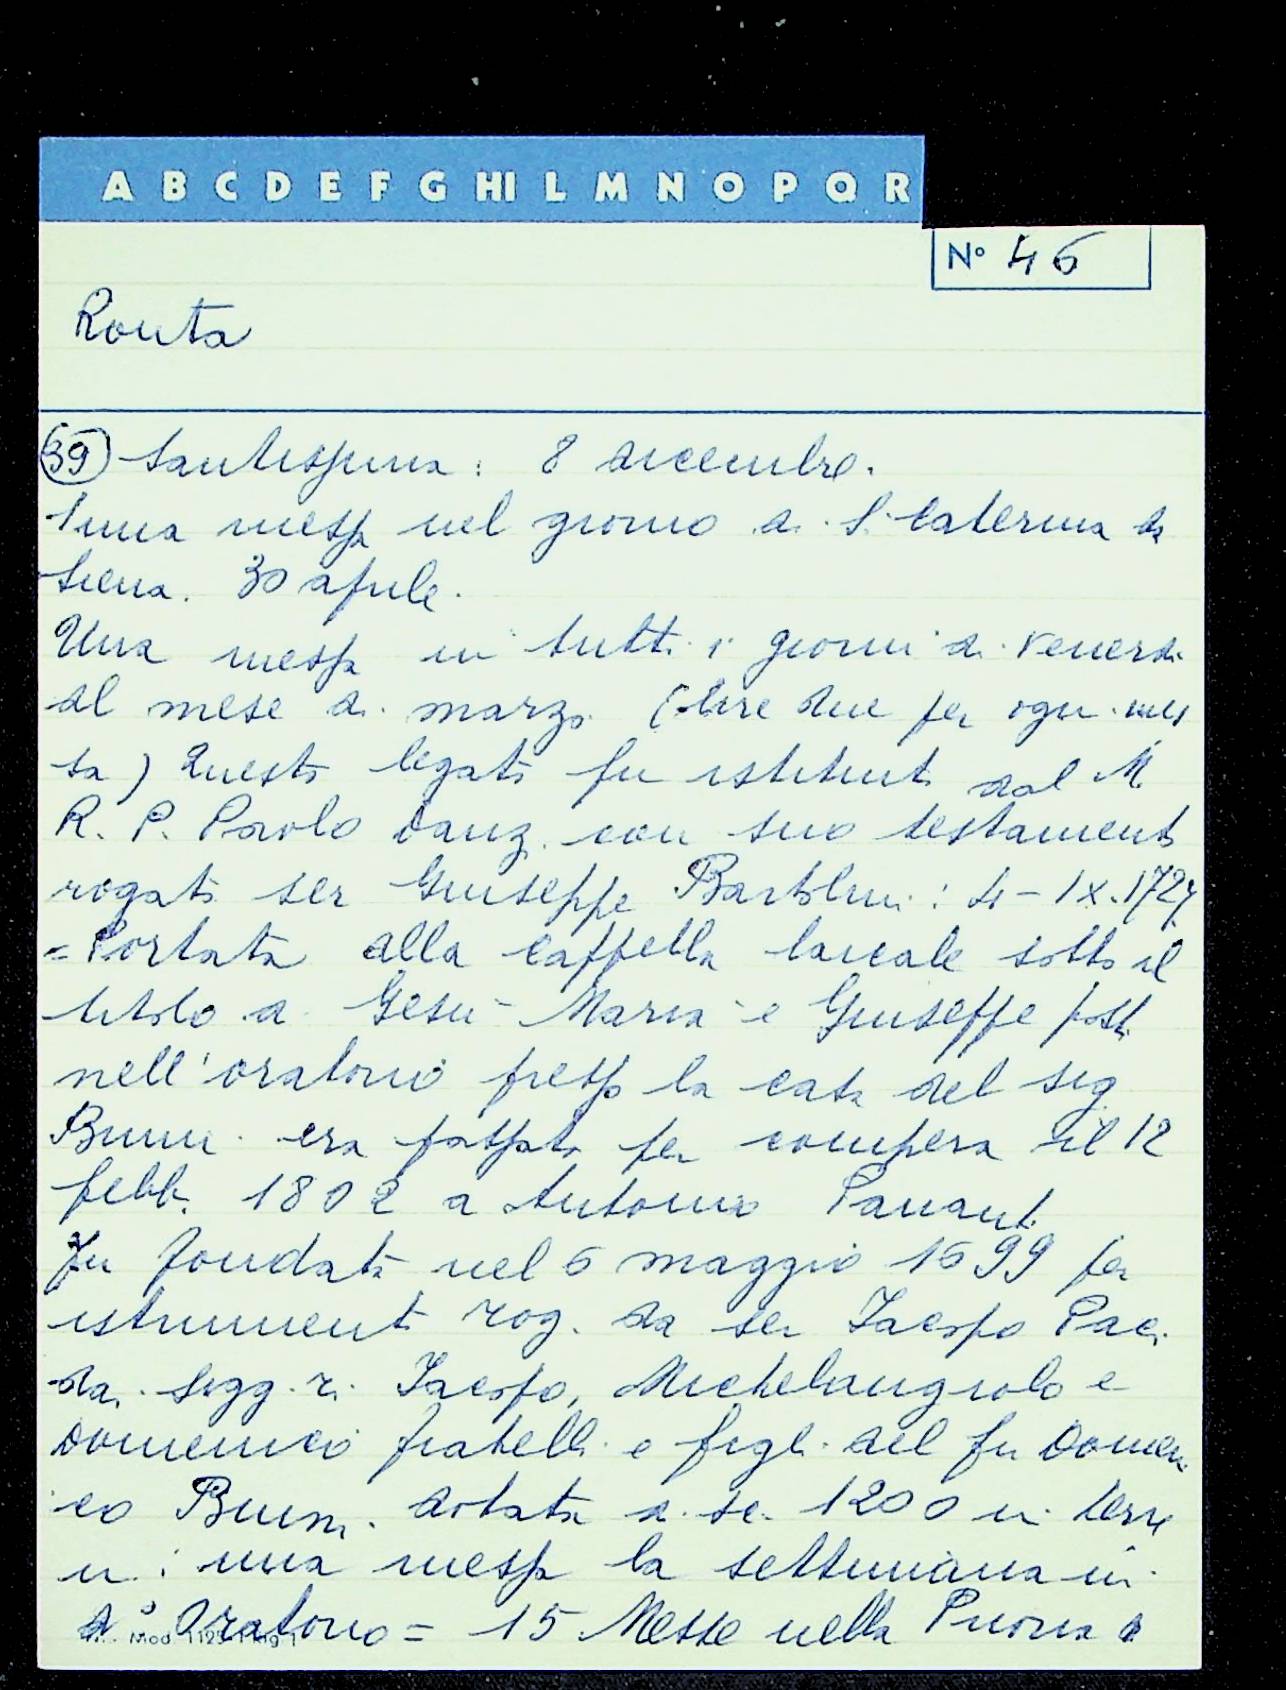 A B C D E F G HI L M N O P Q R
N° 46
Ronta
39) Santissima: 8 dicembre.
1 una messa nel giorno di S. Caterina da
Siena. 30 aprile.
Una messa in tutti i giorni di Venerdì
del mese di marzo (lire due per ogni mes
sa) Questo legato fu istituito dal M.
R. P. Paolo Danzi con suo testamento
rogato ser Giuseppe Bartolini: 4-IX.1727
= Portata alla cappella laicale sotto il
titolo di Gesù - Maria e Giuseppe posta
nell'oratorio presso la casa del sig
era passata per compera il 12
febb. 1802 a Antonio Pananti
Fu fondata nel 6 maggio 1699 per
istrumento rog. da ser Jacopo Paci
dai Sigg.ri Jacopo, Michelangiolo e
Domenico fratelli e figli del fu Domeni
co dotata di sc. 1200 in terre
una messa la settimana in
d° Oratorio = 15 Messe nella